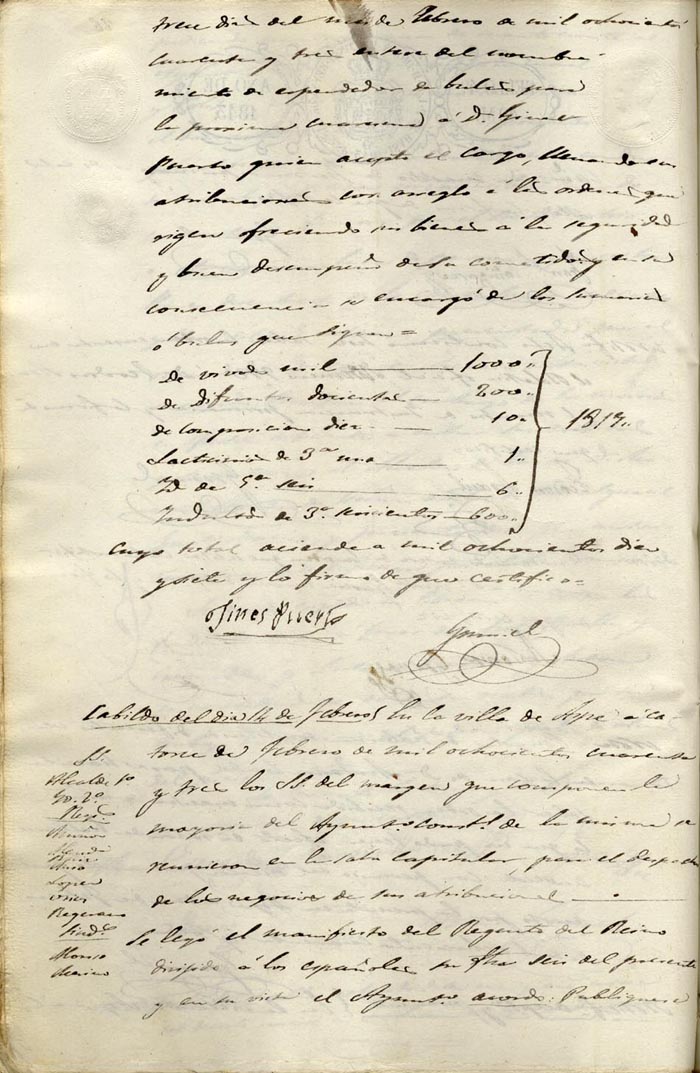 trece dias del mes de Febrero de mil ochocientos
cuarenta y tres entere del nombra-
miento de espendedor de bulas para
la procsima cuaresma á D. Gines
Puerto quien acepto el cargo, llenando sus
atribuciones con arreglo á las ordenes que
rigen ofreciendo sus bienes á la seguridad
y buen desempeño de su cometido, y en su
consecuencia se encargó de los sumarios
ó bulas que siguen=
de vivos mil 1000,,
de difuntos docientas 200,,
de composicion diez 10,,
Lacticinios de 3ª una 1,,
Yd de 5ª seis 6,,
Yndultos de 3ª seiscientos 600,,
1817,,
cuyo total asciende a mil ochocientos diez
y siete y lo firma de que certifico=
Gines Puerto
Cabildo del dia 14 de Febrero
En la villa de á ca-
torce de Febrero de mil ochocientos cuarenta
y tres los SS. del margen que componen la
mayoria del Ayunto. constl. de la misma se
reunieron en la sala capitular, para el despacho
de los negocios de sus atribuciones
SS.
Alcalde 1º
Yd. 2º
Regs.
Muñoz
Ruiz
Lopez
Sinds.
Alonso
Merino
Se leyó el manifiesto del Regente del Reino
dirijido á los españoles su fha seis del presente
y en su vista el Ayunto. acordo: Publiquese